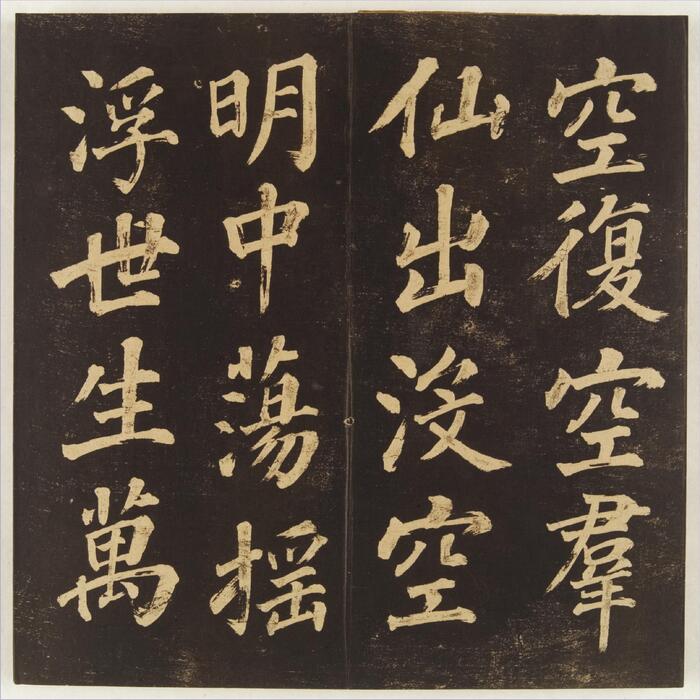 空復空羣
仙出沒空
明中蕩搖
浮世生萬